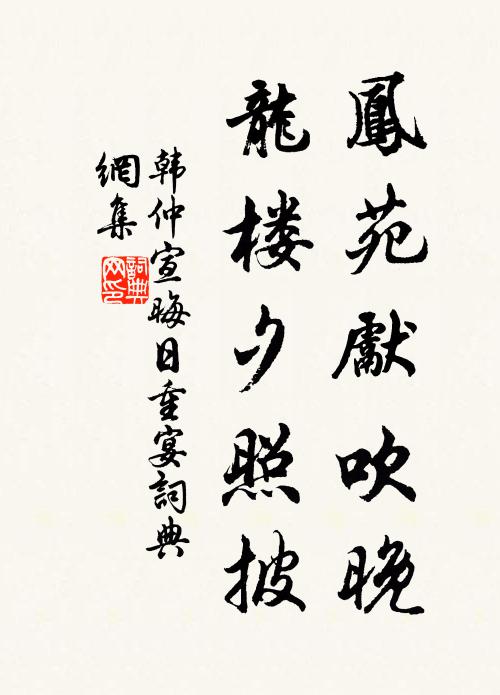 鳳苑獻吹晚
龍楼夕照披
韩仲宣晦日重宴詞典
網集
詞典
网印